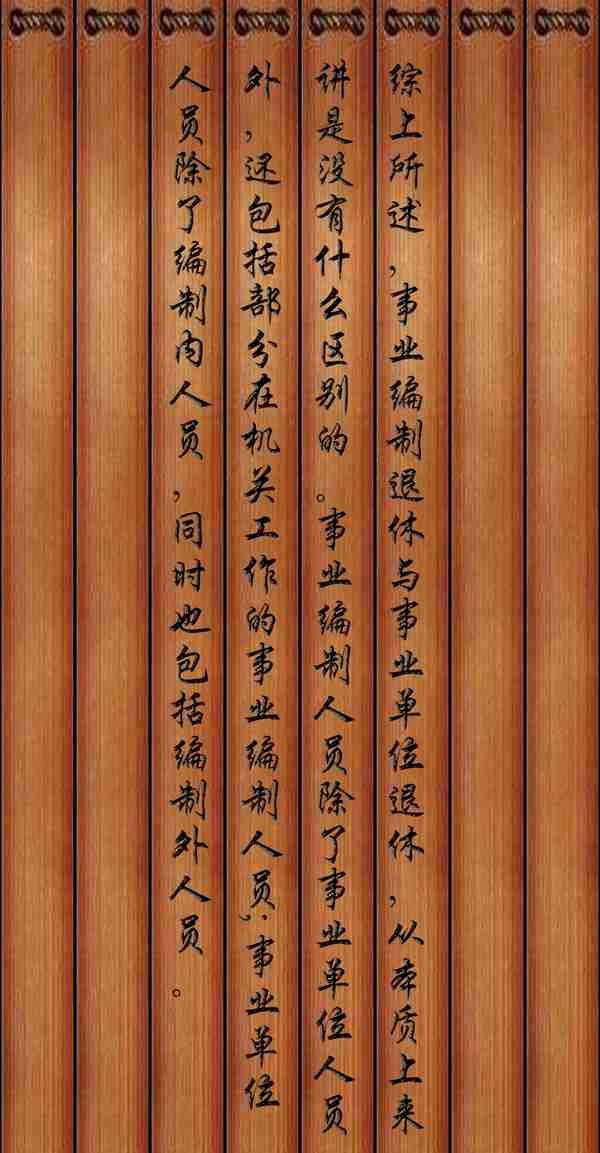 综上所述，事业编制退休与事业单位退休，从本质上来
讲是没有什么区别的。事业编制人员除了事业单位人员
外，还包括部分在机关工作的事业编制人员；事业单位
人员除了编制内人员，同时也包括编制外人员。